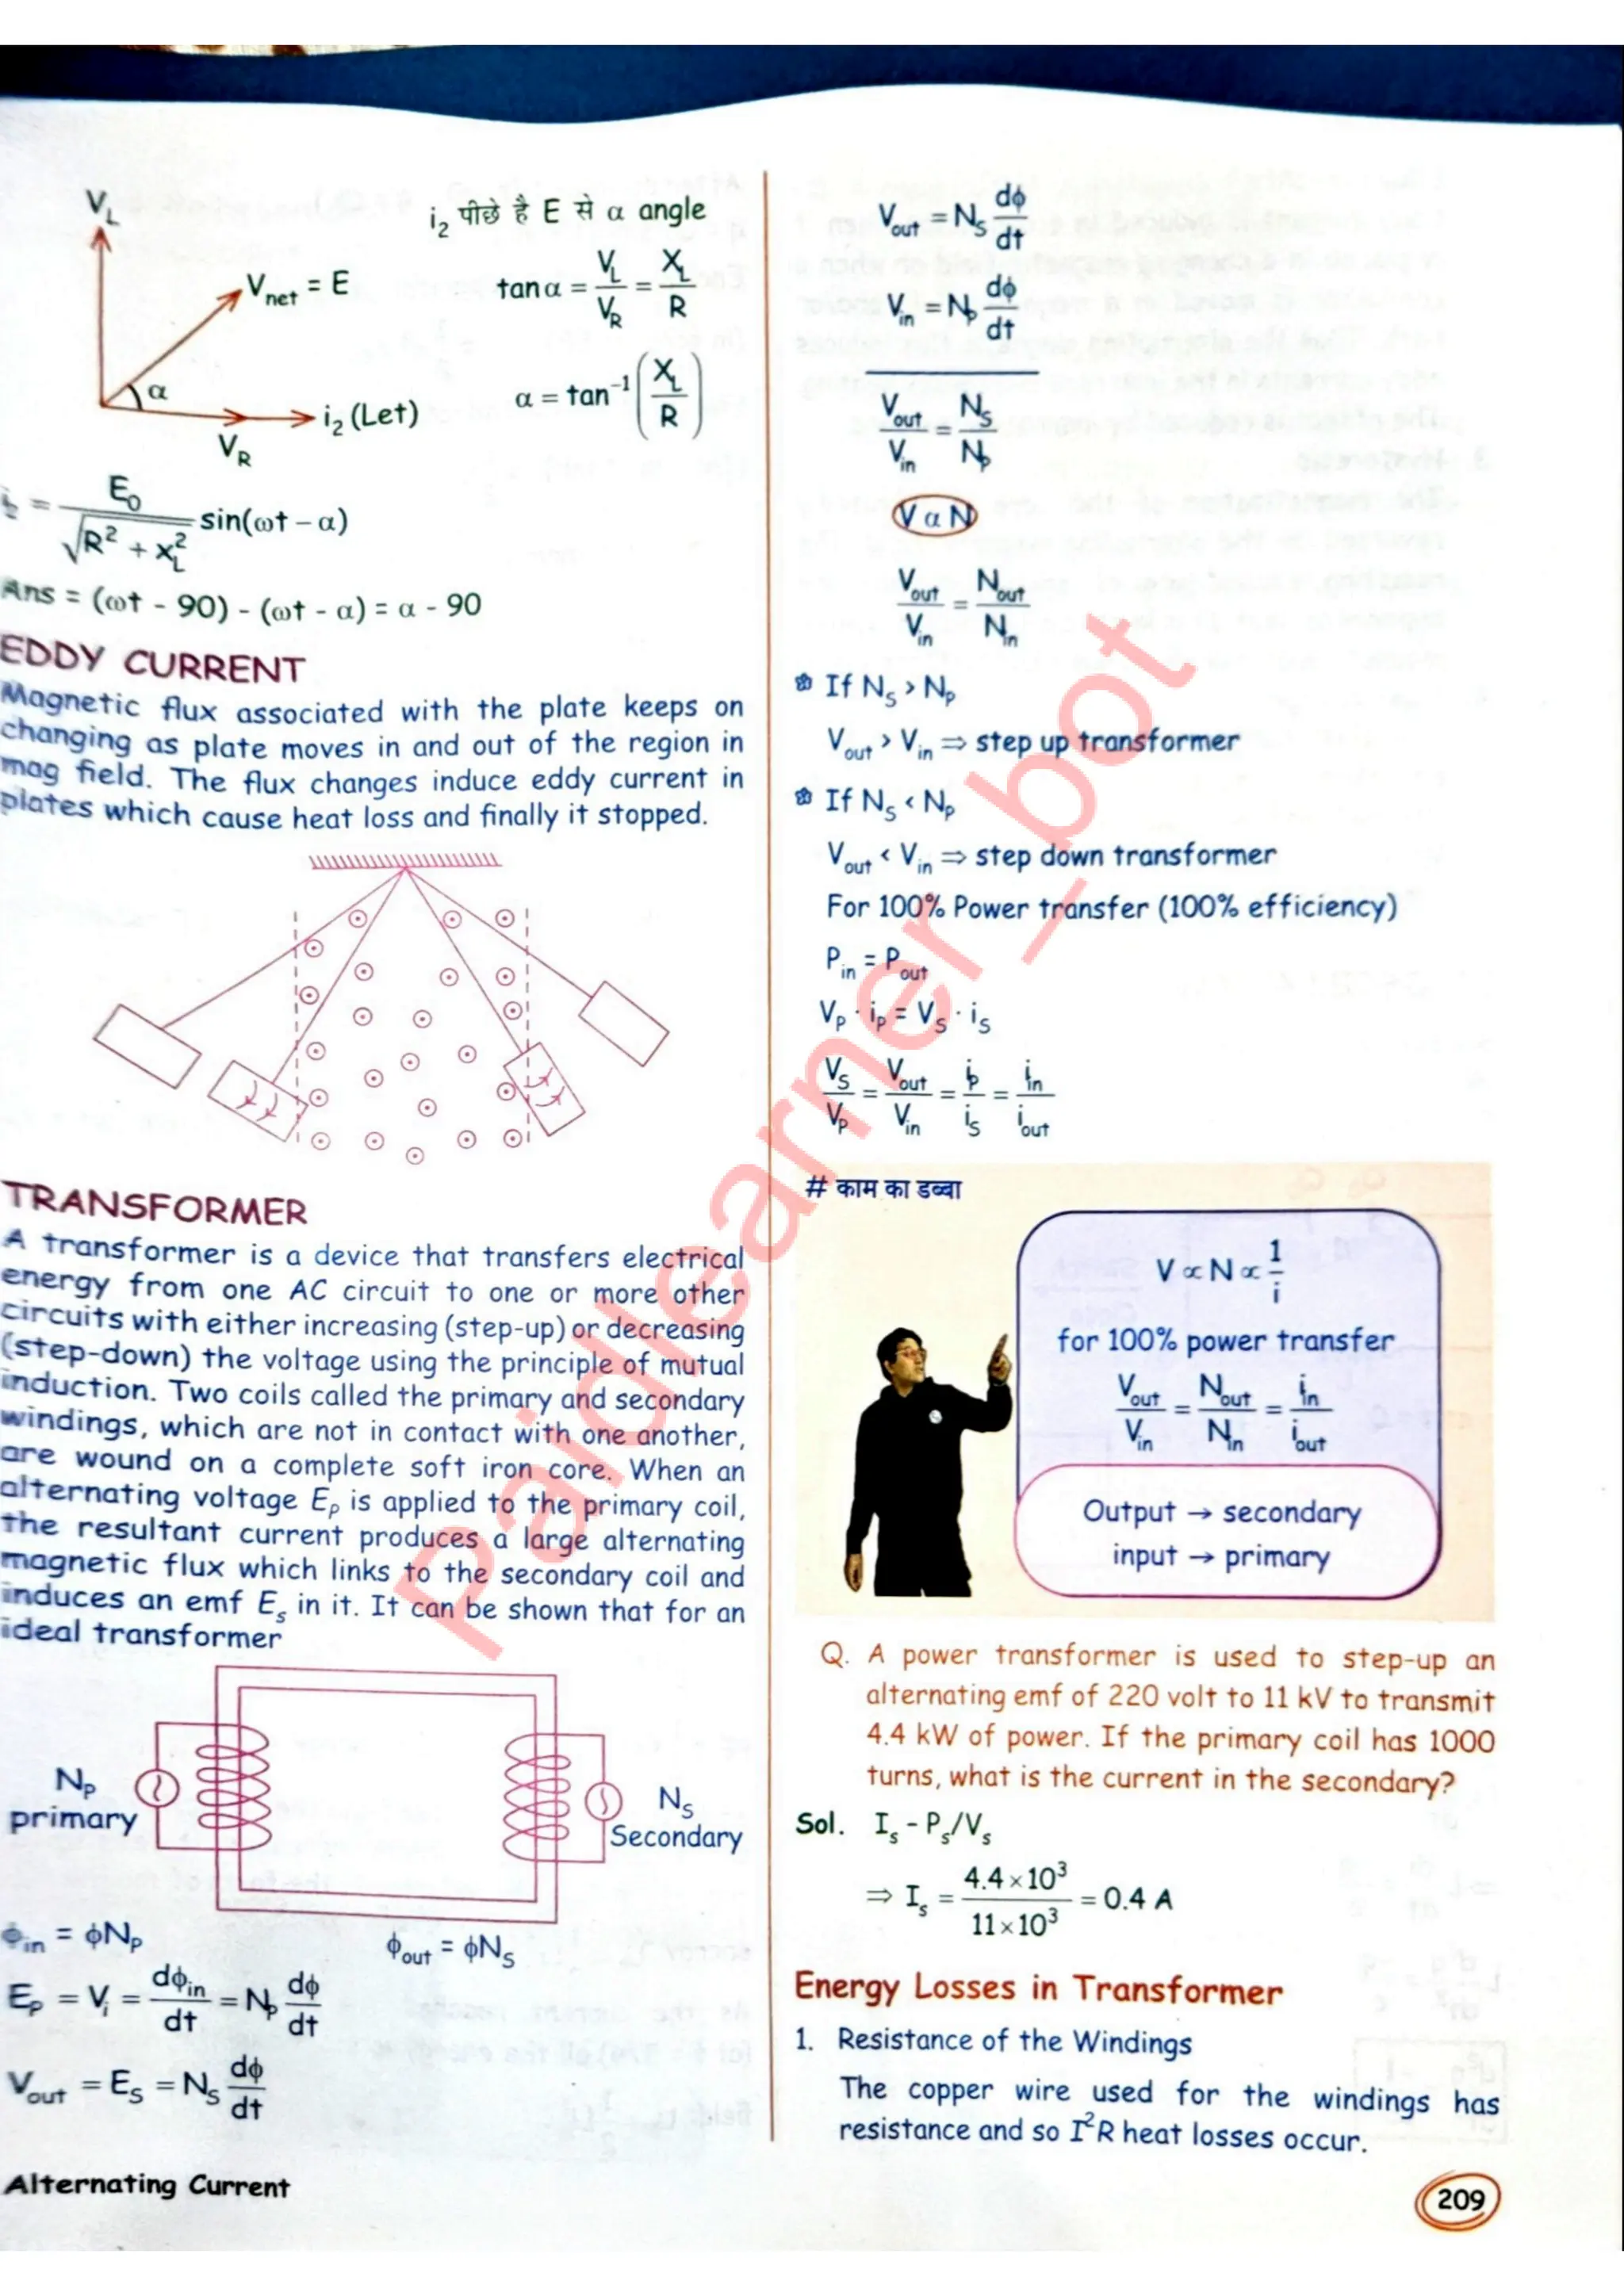 V_L
i₂ पीछे है E से α angle
V_net = E
tan α = V_L/V_R = X_L/R
α
α = tan⁻¹(X_L/R)
i₂ (Let)
V_R
i₂ = E₀/√(R² + x_L²) sin(ωt – α)
Ans = (ωt - 90) - (ωt - α) = α - 90
EDDY CURRENT
Magnetic flux associated with the plate keeps on
changing as plate moves in and out of the region in
mag field. The flux changes induce eddy current in
plates which cause heat loss and finally it stopped.
TRANSFORMER
A transformer is a device that transfers electrical
energy from one AC circuit to one or more other
circuits with either increasing (step-up) or decreasing
(step-down) the voltage using the principle of mutual
induction. Two coils called the primary and secondary
windings, which are not in contact with one another,
are wound on a complete soft iron core. When an
alternating voltage E_P is applied to the primary coil,
the resultant current produces a large alternating
magnetic flux which links to the secondary coil and
induces an emf E_s in it. It can be shown that for an
ideal transformer
N_P
primary
N_S
Secondary
ϕ_in = ϕN_P
ϕ_out = ϕN_S
E_P = V_i = dϕ_in/dt = N_P dϕ/dt
V_out = E_S = N_S dϕ/dt
Alternating Current
V_out = N_S dϕ/dt
V_in = N_P dϕ/dt
V_out/V_in = N_S/N_P
V α N
V_out/V_in = N_out/N_in
If N_S > N_P
V_out > V_in ⇒ step up transformer
If N_S < N_P
V_out < V_in ⇒ step down transformer
For 100% Power transfer (100% efficiency)
P_in = P_out
V_P · i_P = V_S · i_S
V_S/V_P = V_out/V_in = i_P/i_S = i_in/i_out
# काम का डब्बा
V ∝ N ∝ 1/i
for 100% power transfer
V_out/V_in = N_out/N_in = i_in/i_out
Output → secondary
input → primary
Q. A power transformer is used to step-up an
alternating emf of 220 volt to 11 kV to transmit
4.4 kW of power. If the primary coil has 1000
turns, what is the current in the secondary?
Sol. I_s - P_s/V_s
⇒ I_s = 4.4×10³/11×10³ = 0.4 A
Energy Losses in Transformer
1. Resistance of the Windings
The copper wire used for the windings has
resistance and so I²R heat losses occur.
209
Paidlearner_bot